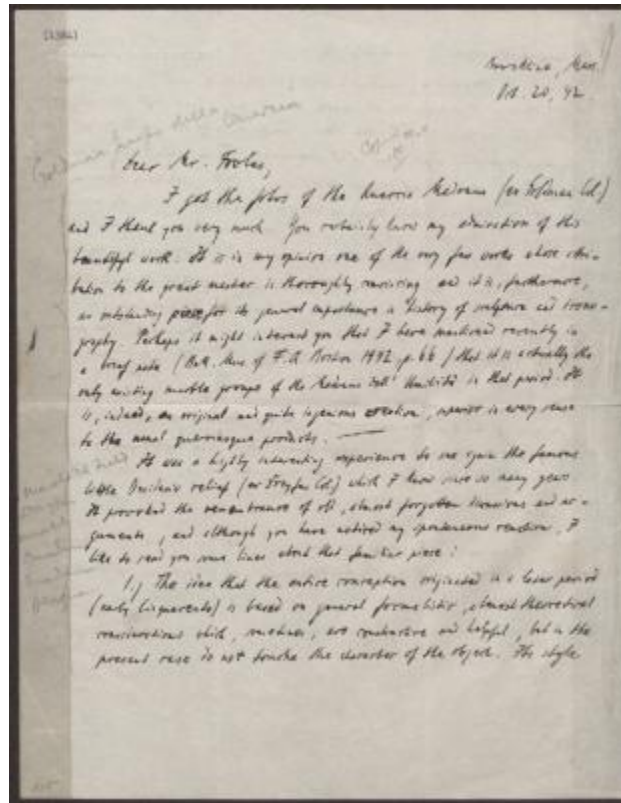 Brookline, Mass.
Oct. 20, 42
Dear Mr.
I got the fotos of the Madonna (ex Goldman Col.)
and I thank you very much. You certainly know my admiration of this
beautiful work. It is in my opinion one of the very few works whose attri-
bution to the great master is thoroughly convincing and it is, furthermore,
an outstanding piece for its general importance in history of sculpture and icono-
graphy. Perhaps it might interest you that I have mentioned recently in
a brief note (Bull. Mus. of F.A. Boston 1942 p. 66) that it is actually the
only existing marble groups of the Madonna dell' Umiltà in that period. It
is, indeed, an original and quite ingenious creation, superior in every sense
to the usual products.
It was a highly interesting experience to see again the famous
little relief (ex Dreyfus Col.) which I know since so many years
It provided the remembrance of old, almost forgotten discussions and ar-
guments, and although you have noticed my spontaneous reaction, I
like to send you some lines about that familiar piece:
1.) The idea that the entire conception originated in a later period
(early Cinquecento) is based on general formalistic, almost theoretical
considerations which, sometimes, are constructive and helpful, but in the
present case do not touche the character of the object. The style